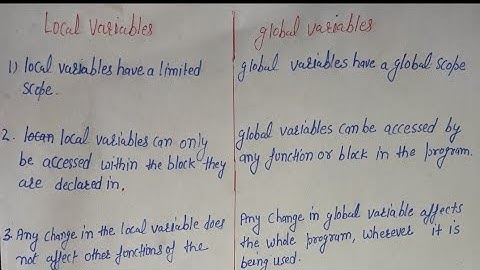 Local Variables
1) local variables have a limited
scope.
2. local variables can only
be accessed within the block they
are declared in.
3. Any change in the local variable does
not affect other functions of the
global variables
global variables have a global scope
global variables can be accessed by
any function or block in the program.
Any change in global variable affects
the whole program, wherever it is
being used.